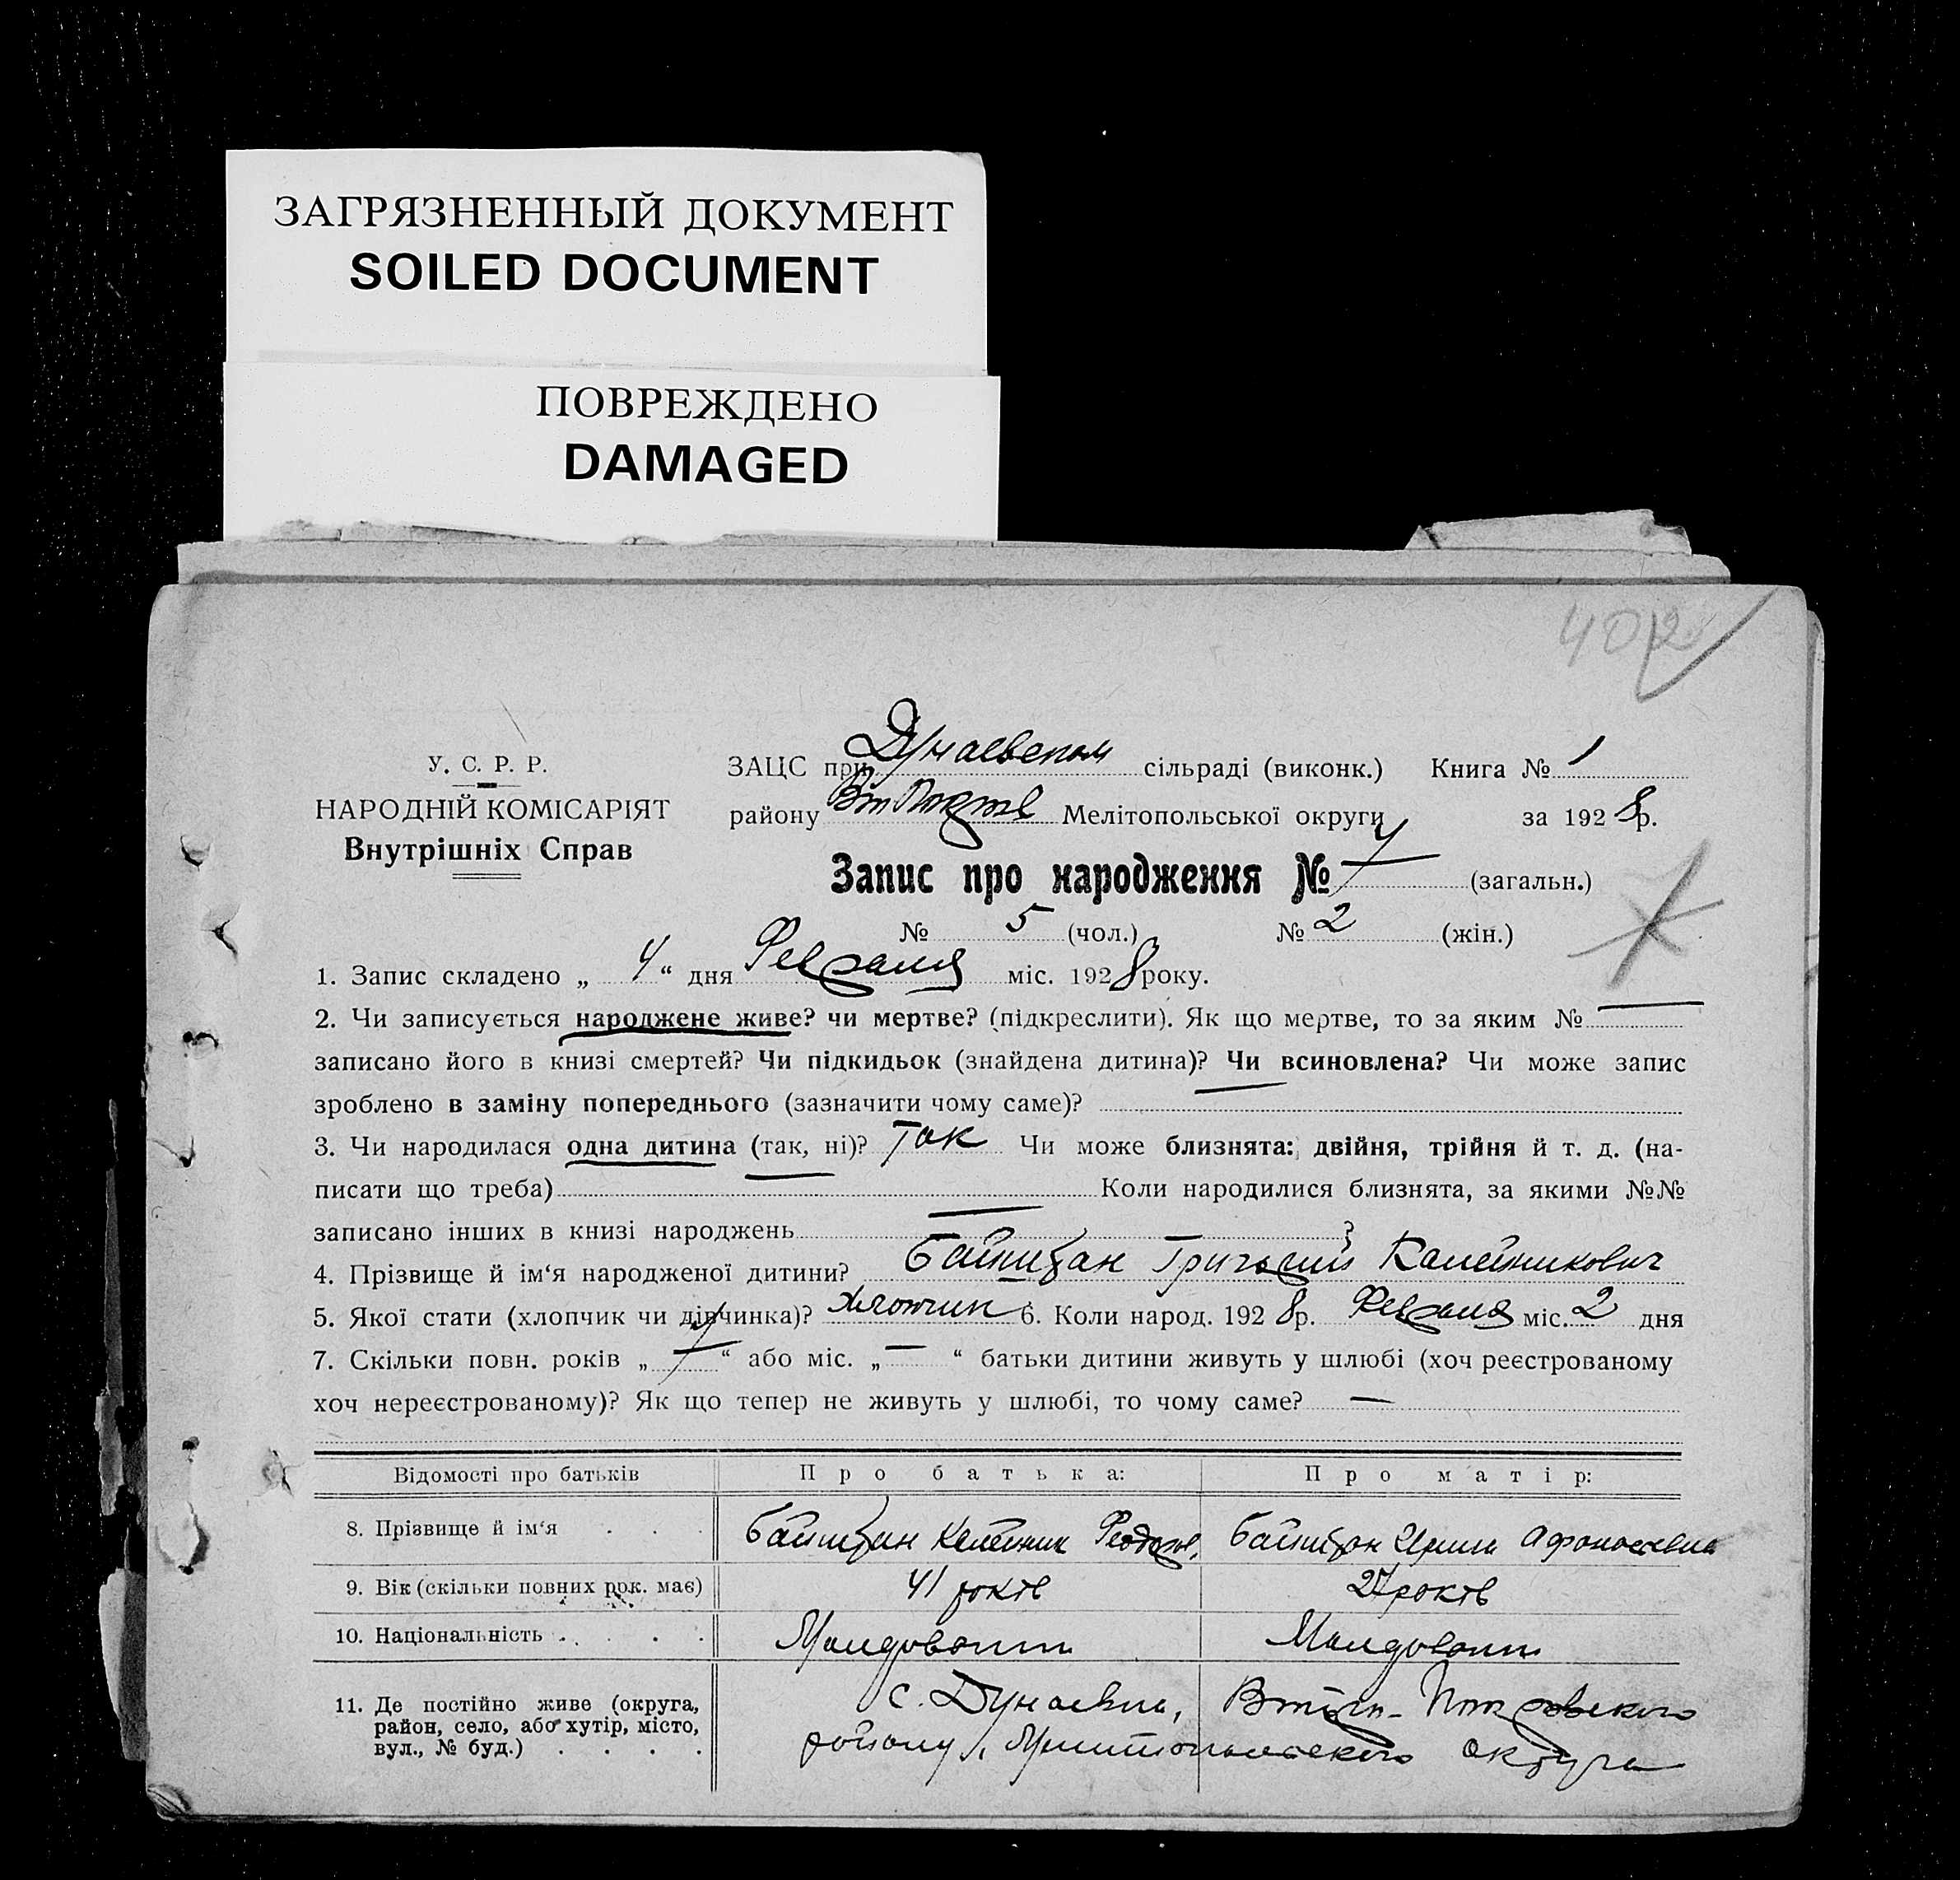 ЗАГРЯЗНЕННЫЙ ДОКУМЕНТ
SOILED DOCUMENT
ПОВРЕЖДЕНО
DAMAGED
402
У. С. Р. Р.
НАРОДНІЙ КОМІСАРІЯТ
Внутрішніх Справ
ЗАЦС при Дунаевском сільраді (виконк.) Книга № 1
району Мелітопольської округи за 1928р.
Запис про народження № 7 (загальн.)
№ 5 (чол.) № 2 (жін.)
1. Запис складено „ 4 “ дня Февраля міс. 1928 року.
2. Чи записується народжене живе? чи мертве? (підкреслити). Як що мертве, то за яким № —
записано його в книзі смертей? Чи підкидьок (знайдена дитина)? Чи всиновлена? Чи може запис
зроблено в заміну попереднього (зазначити чому саме)? —
3. Чи народилася одна дитина (так, ні)? Так Чи може близнята: двійня, трійня й т. д. (на-
писати що треба) — Коли народилися близнята, за якими №№
записано інших в книзі народжень — ?
4. Прізвище й ім‘я народженої дитини? Григорий
5. Якої стати (хлопчик чи дівчинка)? хлопчик 6. Коли народ. 1928р. Февраля міс. 2 дня
7. Скільки повн. років „ 7 “ або міс. „ — “ батьки дитини живуть у шлюбі (хоч реєстрованому
хоч нереєстрованому)? Як що тепер не живуть у шлюбі, то чому саме? —
Відомості про батьків Про батька: Про матір:
8. Прізвище й ім‘я . . . Афанасевна
9. Вік (скільки повних рок. має) 41 років 27 років
10. Національність . . . . Молдовани Молдовани
11. Де постійно живе (округа, с. Дунаевка, Втаро-Покровского
район, село, або хутір, місто, району, Мелитопольского округа
вул., № буд.) . . . .